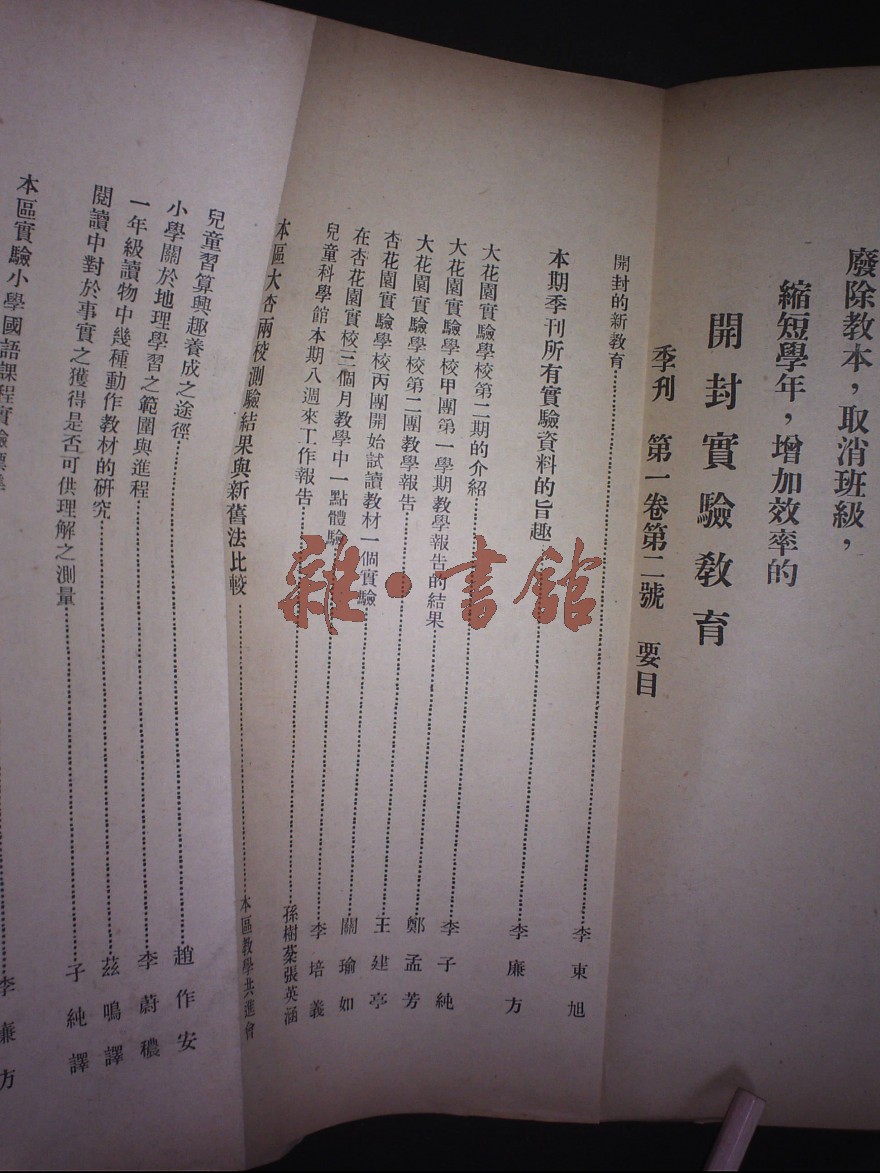 廢除教本，取消班級，
縮短學年，增加效率的
開封實驗教育
季刊 第一卷第二號 要目
開封的新教育……李東旭
本期季刊所有實驗資料的旨趣……李廉方
大花園實驗學校第二期的介紹……李子純
大花園實驗學校甲團第一學期教學報告的結果……鄭孟芳
大花園實驗學校第二團教學報告……王建亭
杏花園實驗學校丙團開始試讀教材一個實驗……關瑜如
在杏花園實校三個月教學中一點體驗……李培義
兒童科學館本期八週來工作報告……孫樹棻張英涵
本區大杏兩校測驗結果與新舊法比較……本區教學共進會
兒童習算興趣養成之途徑……趙作安
小學關於地理學習之範圍與進程……李蔚穠
一年級讀物中幾種動作教材的研究……茲鳴譯
閱讀中對於事實之獲得是否可供理解之測量……子純譯
本區實驗小學國語課程實驗標準……李廉方
雜·書館